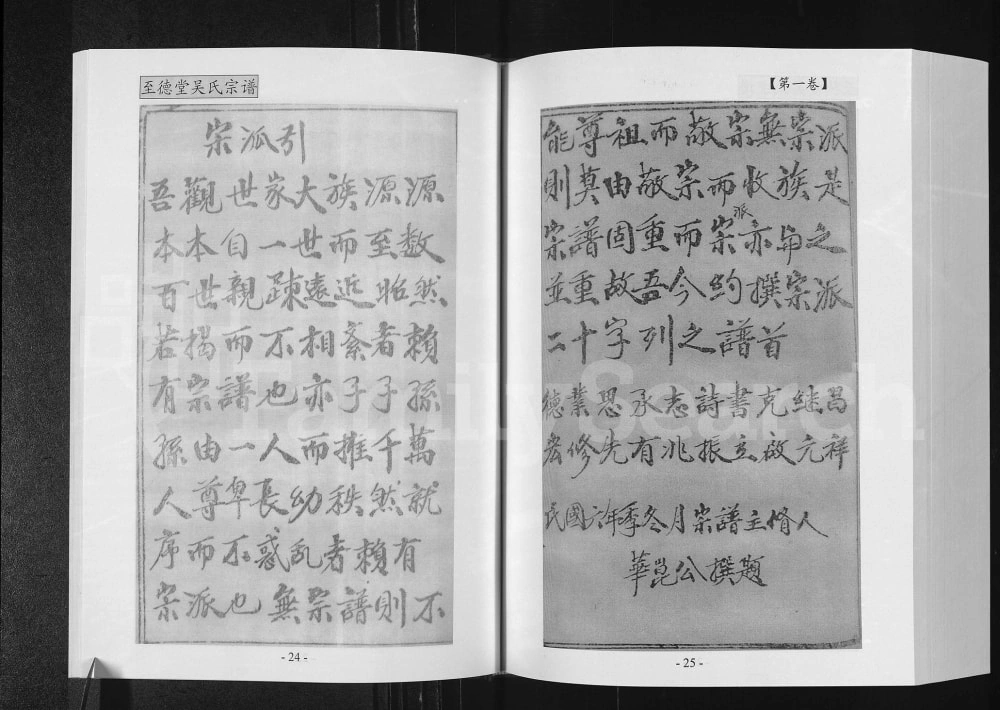 至德堂吴氏宗谱
宗派引
吾觀世家大族源源
本本自一世而至数
百世親疎遠近昭然
若揭而不相紊者賴
有宗譜也亦子子孫
孫由一人而推千萬
人尊卑長幼秩然就
序而不惑乱者賴有
宗派也無宗譜則不
- 24 -
【第一卷】
能尊祖而敬宗無宗派
則莫由敬宗而收族是
宗譜固重而宗派亦与之
並重故吾今約撰宗派
二十字列之譜首
德業思承志詩書克继昌
宏修先有兆振立啟元祥
民國六年季冬月宗譜主脩人
華崑公撰題
- 25 -
FamilySearch